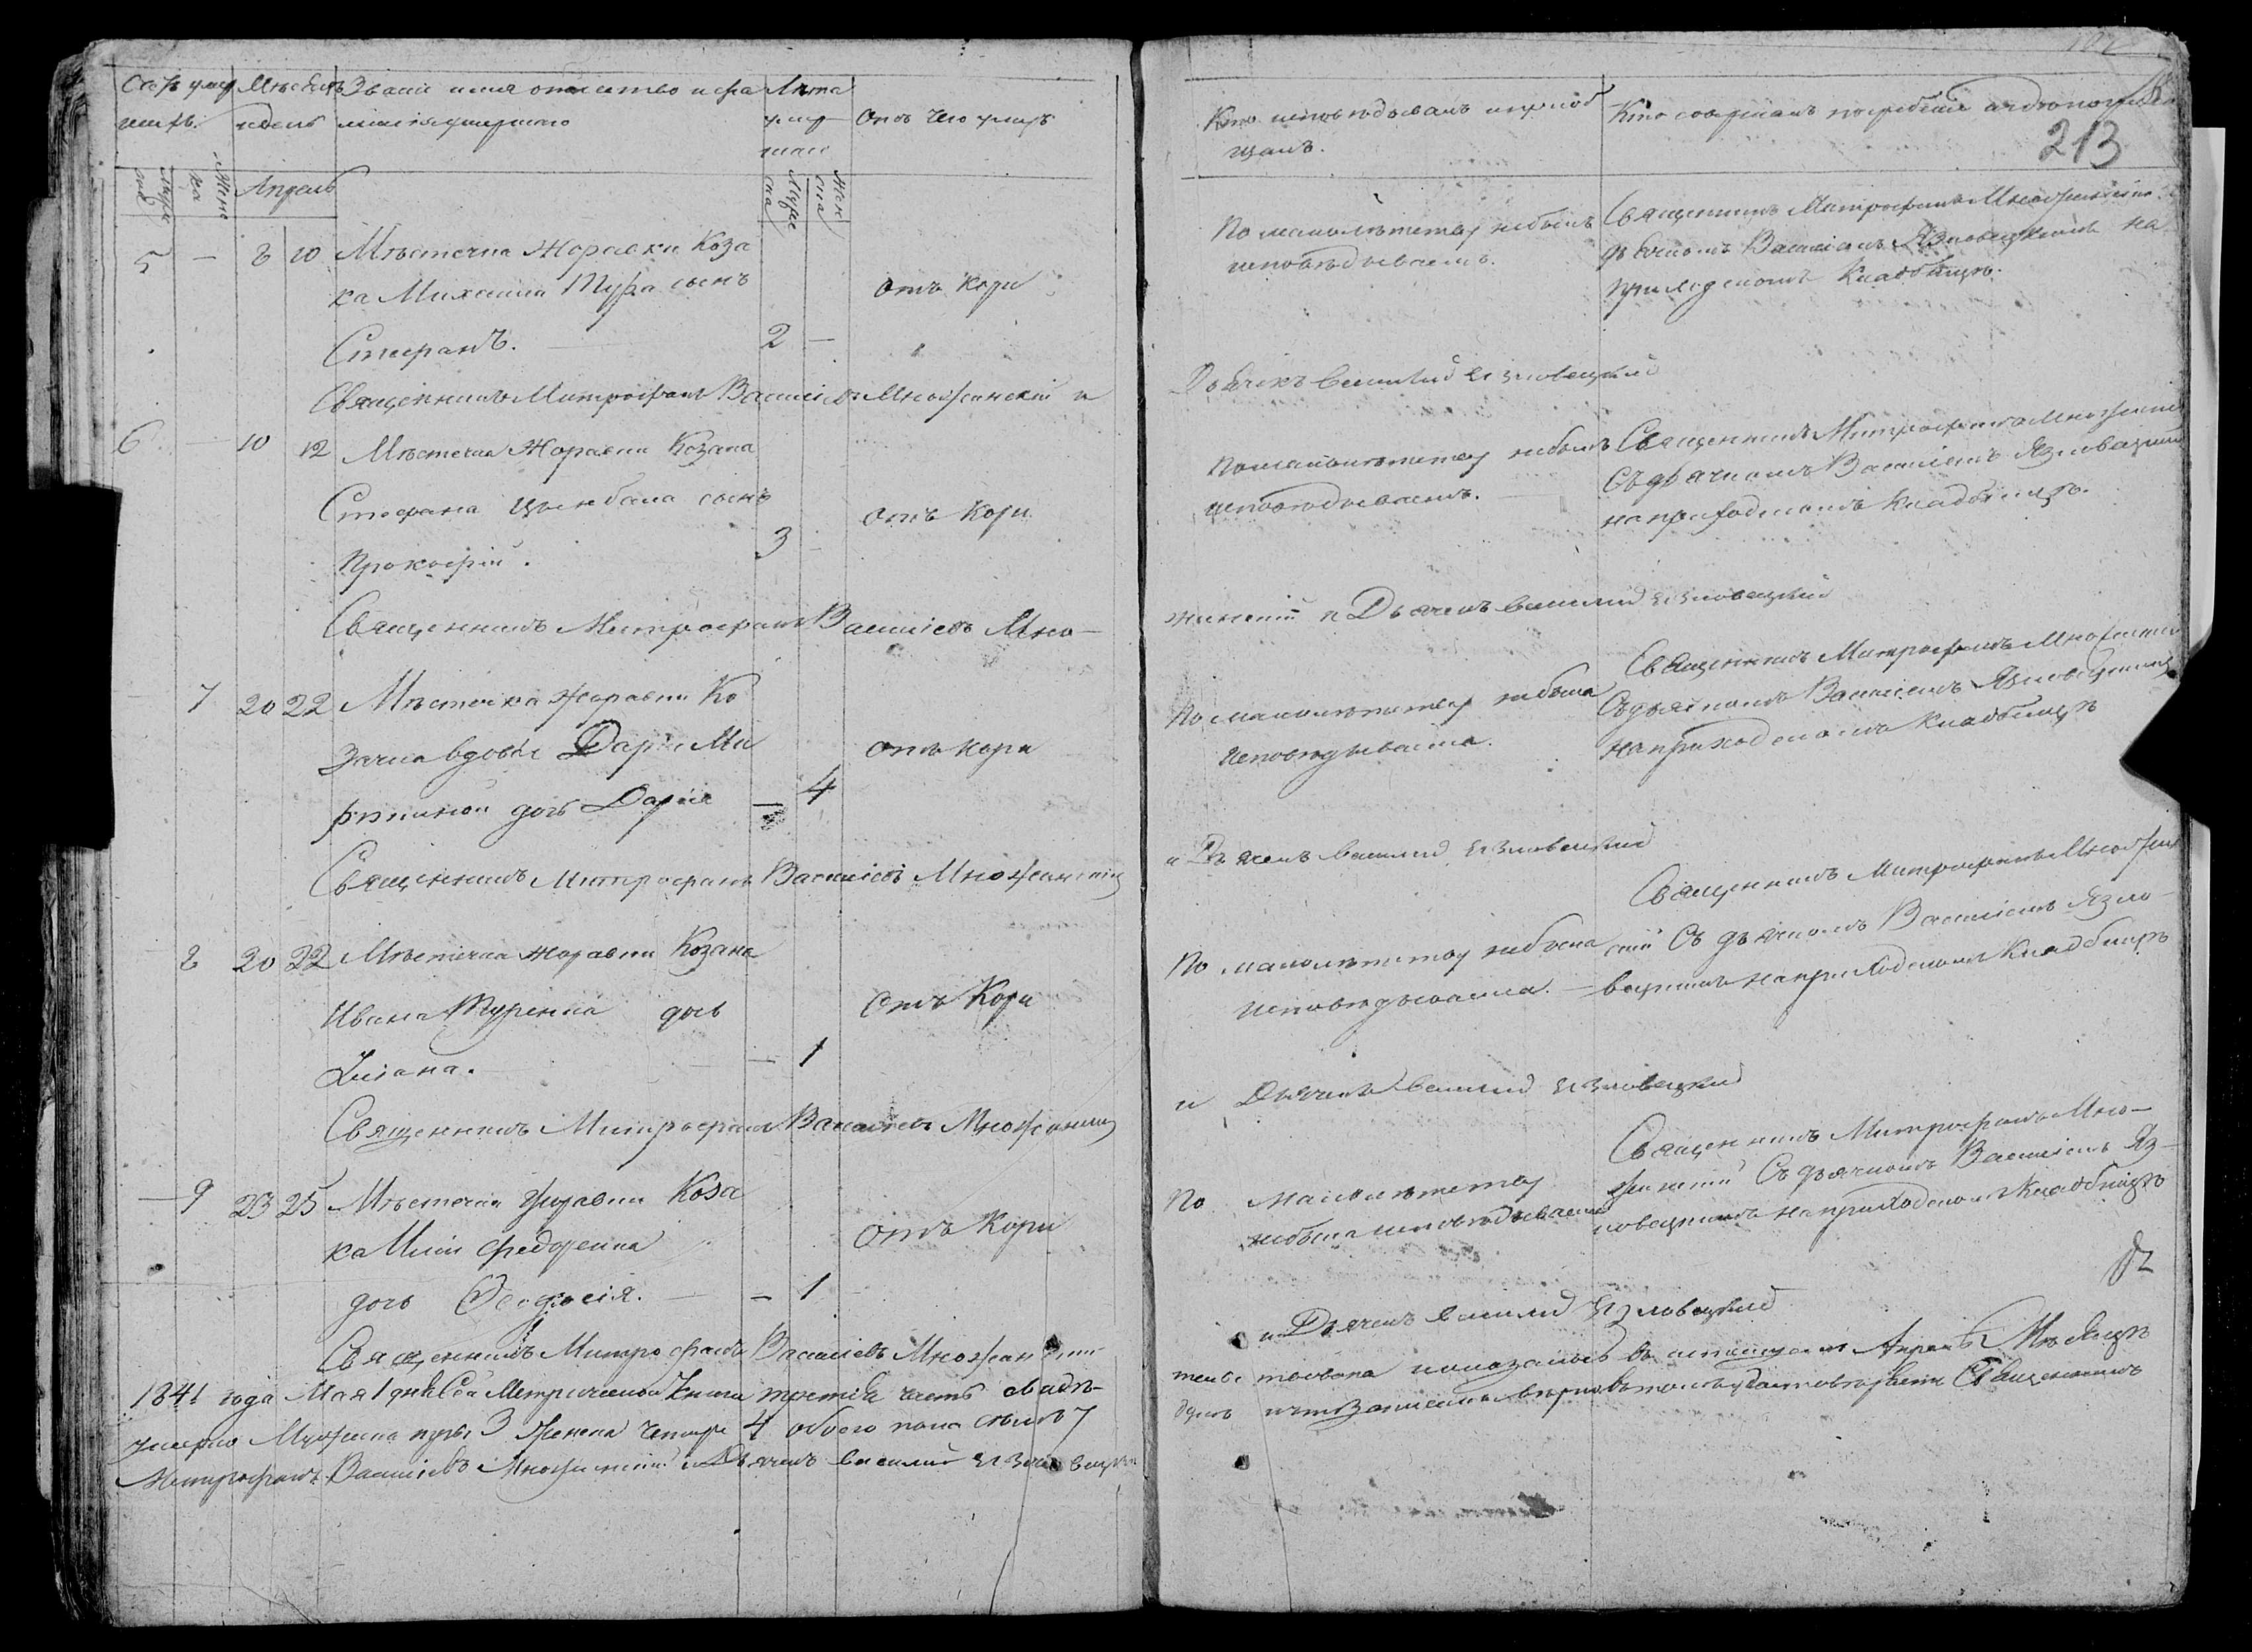 Мѣсяцъ
Званіе имя отчество и фа
Лѣта
и день
милія умершаго
умер
Отъ чего умеръ
шаго
Апрель
5 — 8 10 Мѣстечка Жоравки Коза
ка Михаила Тура сынъ
Отъ Кори
Стефанъ. 2 —
Священникъ Митрофанъ Василіевъ Множинскій и
6 — 10 12 Мѣстечка Жоравки Козака
Стефана Цымбала сынъ
Отъ Кори
3 —
Прокофій.
Священникъ Митрофанъ Василіевъ Мно-
7 20 22 Мѣстечка Жоравки Ко
зачка вдовы Даріи
Отъ кори
дочь Дарія — 4
Священникъ Митрофанъ Василіевъ Множинскій
8 20 22 Мѣстечка Жоравки Козака
Ивана Туренка дочь
Отъ Кори
Уліана. — 1
Священникъ Митрофанъ Василіевъ Множинскій
— 9 23 25 Мѣстечка Журавки Коза
ка Федоренка
Отъ Кори
дочь Феодосія. — 1
Священникъ Митрофанъ Василіевъ Множинскій
1841 года Мая 1 дня Сей Метрической Книги третія часть
умерло Мужеска три 3 Женска четыре 4 обоего пола семь 7
Митрофанъ Василіевъ Множинскій и Дьячекъ Василий Язловецкий
Кто исповѣдывалъ и пріоб
щалъ.
Кто совершалъ погребеніе и гдѣ
213
По малолѣтству небылъ
исповѣдываемъ.
Священникъ Митрофанъ Множинскій
дьячкомъ Василіемъ Язловецкимъ на
приходскомъ Кладбищѣ.
Дьячекъ Василий Язловецкий
По малолѣтству небылъ
исповѣдываемъ.
Священникъ Митрофанъ Множинскій
Съ дьячкомъ Василіемъ Язловецкимъ
на приходскомъ Кладбищѣ.
жинскій и Дьячекъ Василий Язловецкий
По малолѣтству небыла
исповѣдываема.
Священникъ Митрофанъ Множинскій
Съ дьячкомъ Василіемъ Язловецкимъ
на приходскомъ Кладбищѣ
и Дьячекъ Василий Язловецкий
По малолѣтству небыла
исповѣдываема.
Священникъ Митрофанъ Множин
скій Съ дьячкомъ Василіемъ Язло-
вецкимъ на приходскомъ Кладбищѣ
и Дьячекъ Василий Язловецкий
По малолѣтству
небыла исповѣдываема
Священникъ Митрофанъ Мно-
жинскій Съ дьячкомъ Василіемъ Яз-
ловецкимъ на приходскомъ Кладбищѣ
и Дьячекъ Василий Язловецкий
Мѣсяцѣ
Священникъ